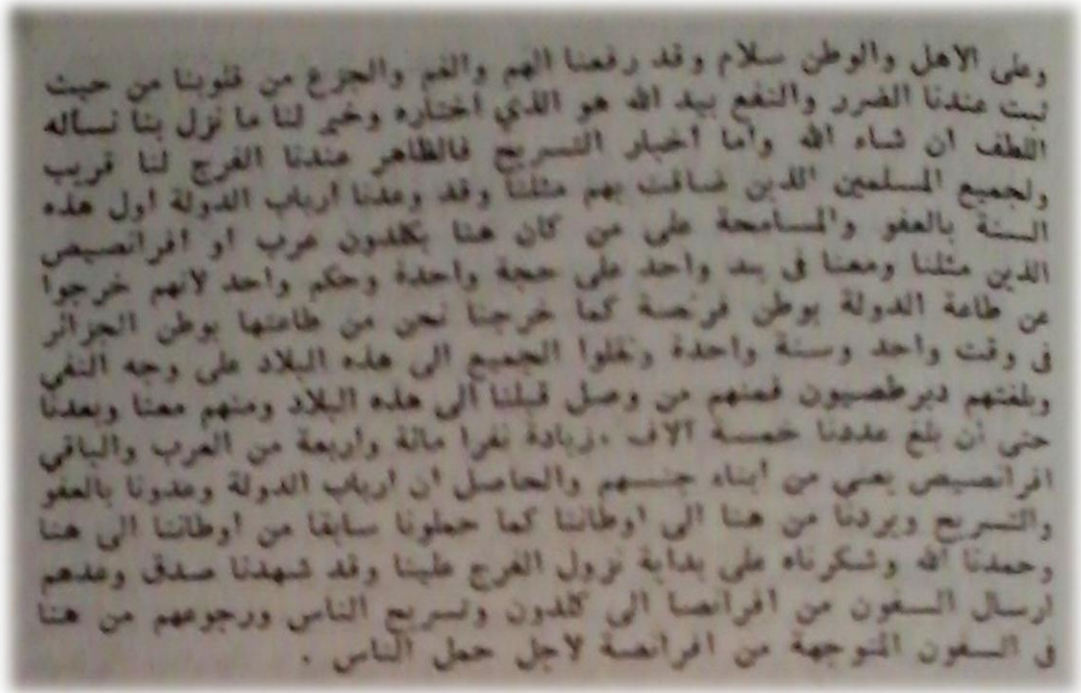 وعلى الاهل والوطن سلام وقد رفعنا الهم والغم والجزع من قلوبنا من حيث
ثبت عندنا الضرر والنفع بيد الله هو الذي اختاره وخير لنا ما نزل بنا نسأله
اللطف ان شاء الله واما اخبار التسريح فالظاهر عندنا الفرج لنا قريب
ولجميع المسلمين الذين ضاقت بهم مثلنا وقد وعدنا ارباب الدولة اول هذه
السنة بالعفو والمسامحة على من كان هنا بكلدون عرب او افرانصيص
الذين مثلنا ومعنا في يد واحد على حجة واحدة وحكم واحد لانهم خرجوا
عن طاعة الدولة بوطن فرنسة كما خرجنا نحن من طاعتها بوطن الجزائر
في وقت واحد وسنة واحدة ونقلوا الجميع الى هذه البلاد على وجه النفي
وبلغتهم ديرطصيون فمنهم من وصل قبلنا الى هذه البلاد ومنهم معنا وبعدنا
حتى ان بلغ عددنا خمسة آلاف وزيادة نفرا مائة واربعة من العرب والباقي
افرانصيص يعني من ابناء جنسهم والحاصل ان ارباب الدولة وعدونا بالعفو
والتسريح ويردنا من هنا الى اوطاننا كما حملونا سابقا من اوطاننا الى هنا
وحمدنا الله وشكرناه على بداية نزول الفرج علينا وقد شهدنا صدق وعدهم
ارسال السفون من افرانصا الى كلدون وتسريح الناس ورجوعهم من هنا
في السفون المتوجهة من افرانصة لاجل حمل الناس .